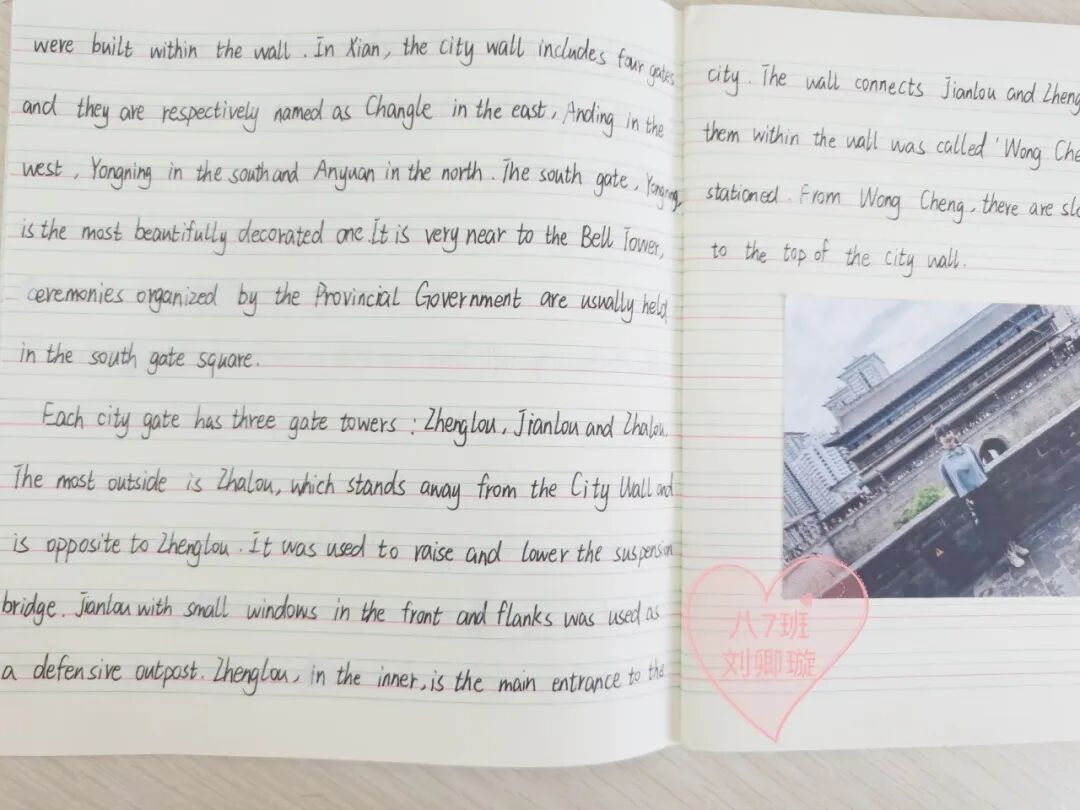 were built within the wall. In Xian, the city wall includes four gates
and they are respectively named as Changle in the east, Anding in the
west, Yongning in the south and Anyuan in the north. The south gate, Yongning,
is the most beautifully decorated one. It is very near to the Bell Tower,
ceremonies organized by the Provincial Government are usually held
in the south gate square.
Each city gate has three gate towers: Zhenglou, Jianlou and Zhalou.
The most outside is Zhalou, which stands away from the City Wall and
is opposite to Zhenglou. It was used to raise and lower the suspension
bridge. Jianlou with small windows in the front and flanks was used as
a defensive outpost. Zhenglou, in the inner, is the main entrance to the
city. The wall connects Jianlou and
them within the wall was called 'Wong
stationed. From Wong Cheng, there are
to the top of the city wall.
八7班
刘卿璇